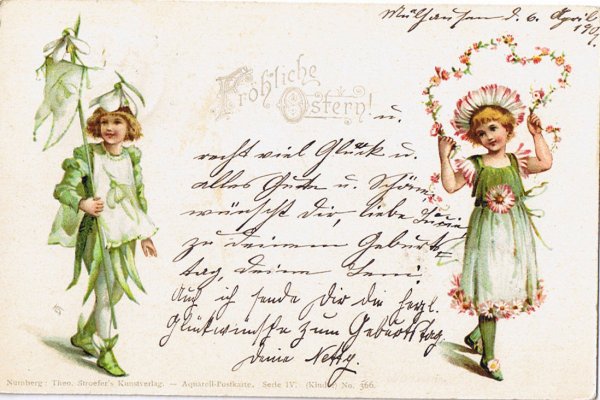 Mülhausen d. 6. April
190
Fröhliche
Ostern!
u.
recht viel Glück u.
alles Gute u. Schöne
wünscht Dir, liebe
zu deinem Geburts=
tag, deine Leni.
Auch ich sende Dir die herzl.
Glückwünsche zum Geburtstag.
Deine Netty.
Nürnberg: Theo. Stroefer's Kunstverlag. — Aquarell-Postkarte. Serie IV. (Kinder) No. 366.